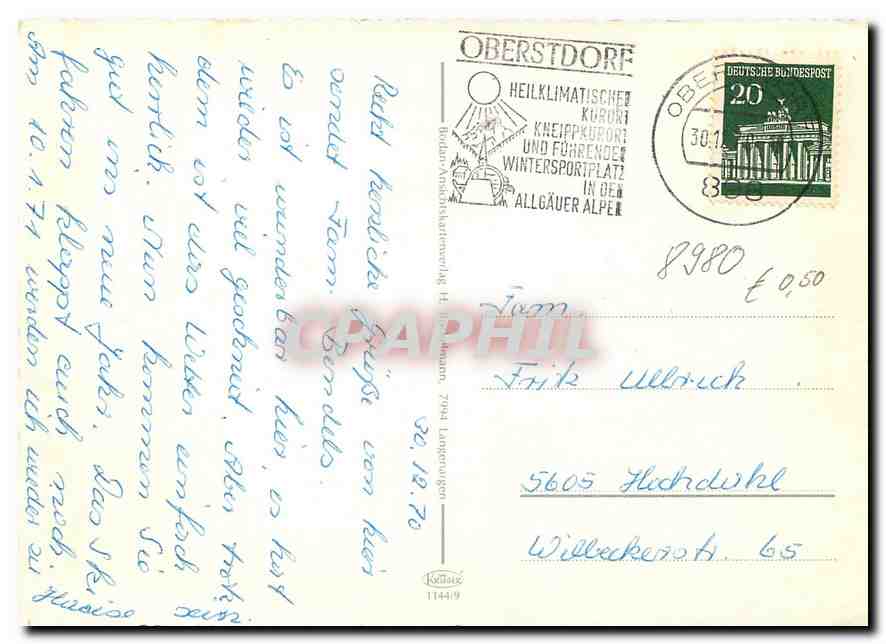 30.12.70
Recht herzliche Grüße von hier
sendet Fam. Bendels.
Es ist wunderbar hier, es hat
wieder viel geschneit. Aber trotz
dem ist das Wetter einfach
herrlich. Nun kommen Sie
gut ins neue Jahr. Das Ski
fahren klappt auch noch.
Am 10.1.71 werden wir wieder zu
Hause sein.
Bodan-Ansichtskartenverlag H. mann, 7994 Langenargen
Krüger
1144/9
OBERSTDORF
HEILKLIMATISCHER
KURORT
KNEIPPKURORT
UND FÜHRENDER
WINTERSPORTPLATZ
IN DEN
ALLGÄUER ALPEN
OBER
30.1
898
DEUTSCHE BUNDESPOST
20
8980
€ 0,50
CPAPHIL
Fam.
Fritz Ullrich
5605 Hochdahl
Willbeckerstr. 65